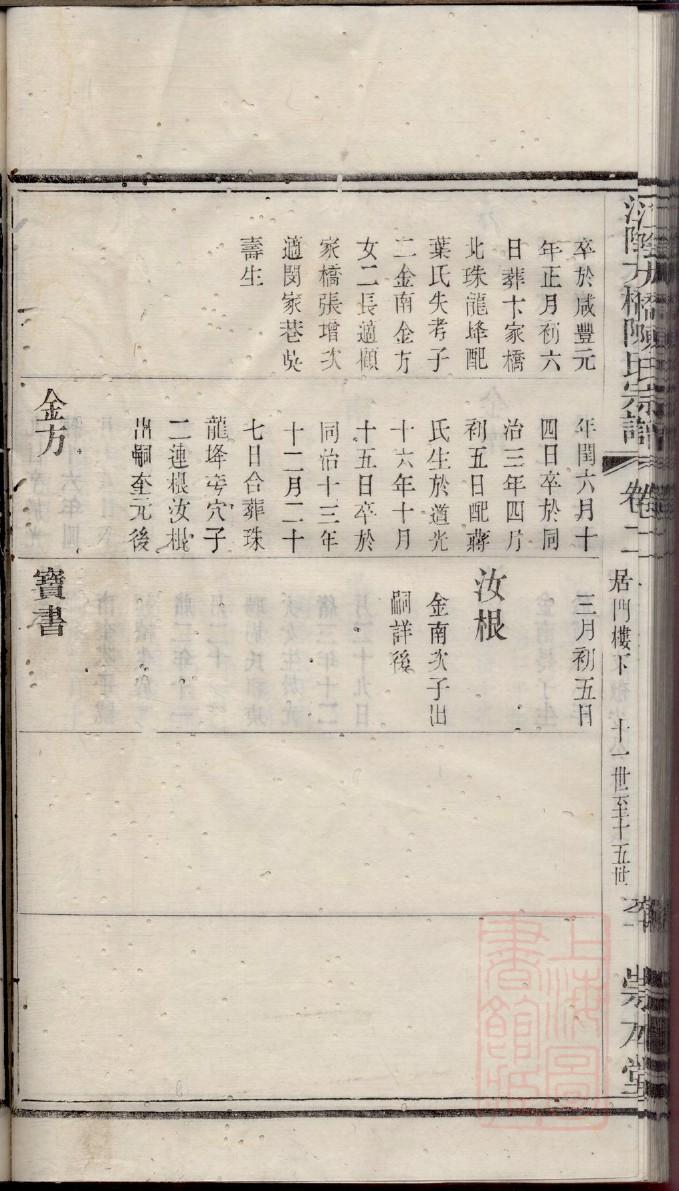 江陰九橋陳氏宗譜
卷二
居門樓下
十一世至十五世
崇本堂
卒於咸豐元
年正月初六
日葬卞家橋
北珠龍垶配
葉氏失考子
二金南金方
女二長適顧
家橋張增次
適閔家巷吳
壽生
年閏六月十
四日卒於同
治三年四月
初五日配蔣
氏生於道光
十六年十月
十五日卒於
同治十三年
十二月二十
七日合葬珠
龍垶穴子
二連根汝根
出嗣奎元後
金方
三月初五日
汝根
金南次子出
嗣詳後
寶書
上海圖書館藏